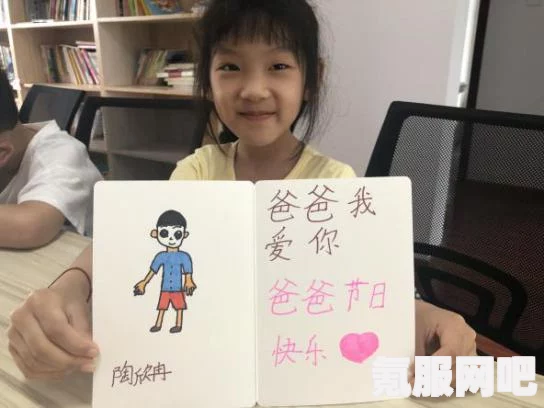 陶欣冉
爸爸我
爱你
爸爸节日
快乐
氪服网吧